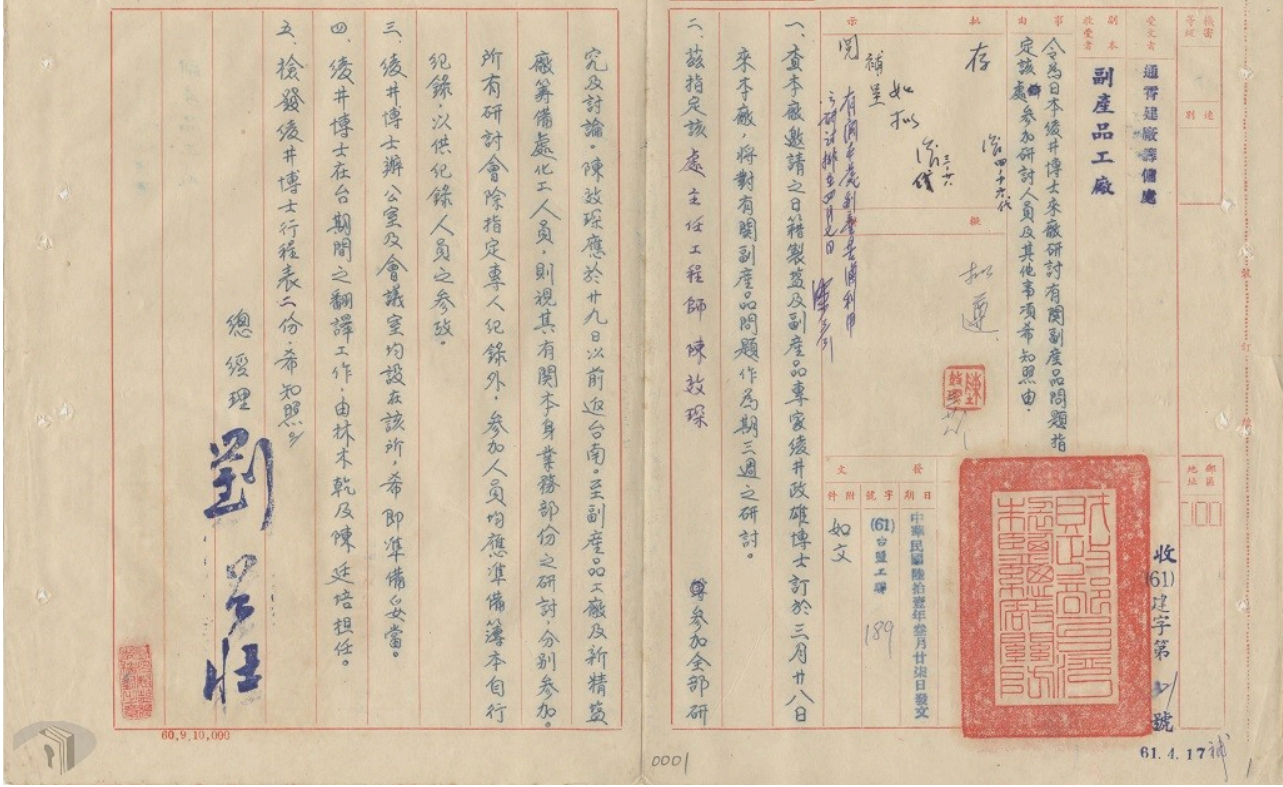 機密等級
速別
受文者
通霄建廠籌備處
副本收受者
副產品工廠
事由
令為日本綾井博士來廠研討有關副產品問題指
定該處參加研討人員及其他事項希知照由。
批示
存
如拟
補呈
閱
擬
郵區
地址
發文
日期
中華民國陸拾壹年叁月廿柒日發文
字號
(61)台鹽工
189
附件
如文
收(61)建字第 號
61.4.17補
一、查本廠邀請之日籍製鹽及副產品專家綾井政雄博士訂於三月廿八日
來本廠,將對有關副產品問題作為期三週之研討。
二、茲指定該處主任工程師陳效琛 等參加全部研
究及討論。陳效琛應於廿九日以前返台南。至副產品工廠及新精鹽
廠籌備處化工人員,則視其有關本身業務部份之研討,分別參加。
所有研討會除指定專人紀錄外,參加人員均應準備簿本自行
紀錄,以供紀錄人員之參攷。
三、綾井博士辦公室及會議室均設在該所,希即準備妥當。
四、綾井博士在台期間之翻譯工作,由林木乾及陳廷培担任。
五、檢發綾井博士行程表二份,希知照。
總經理
60,9,10,000
0001